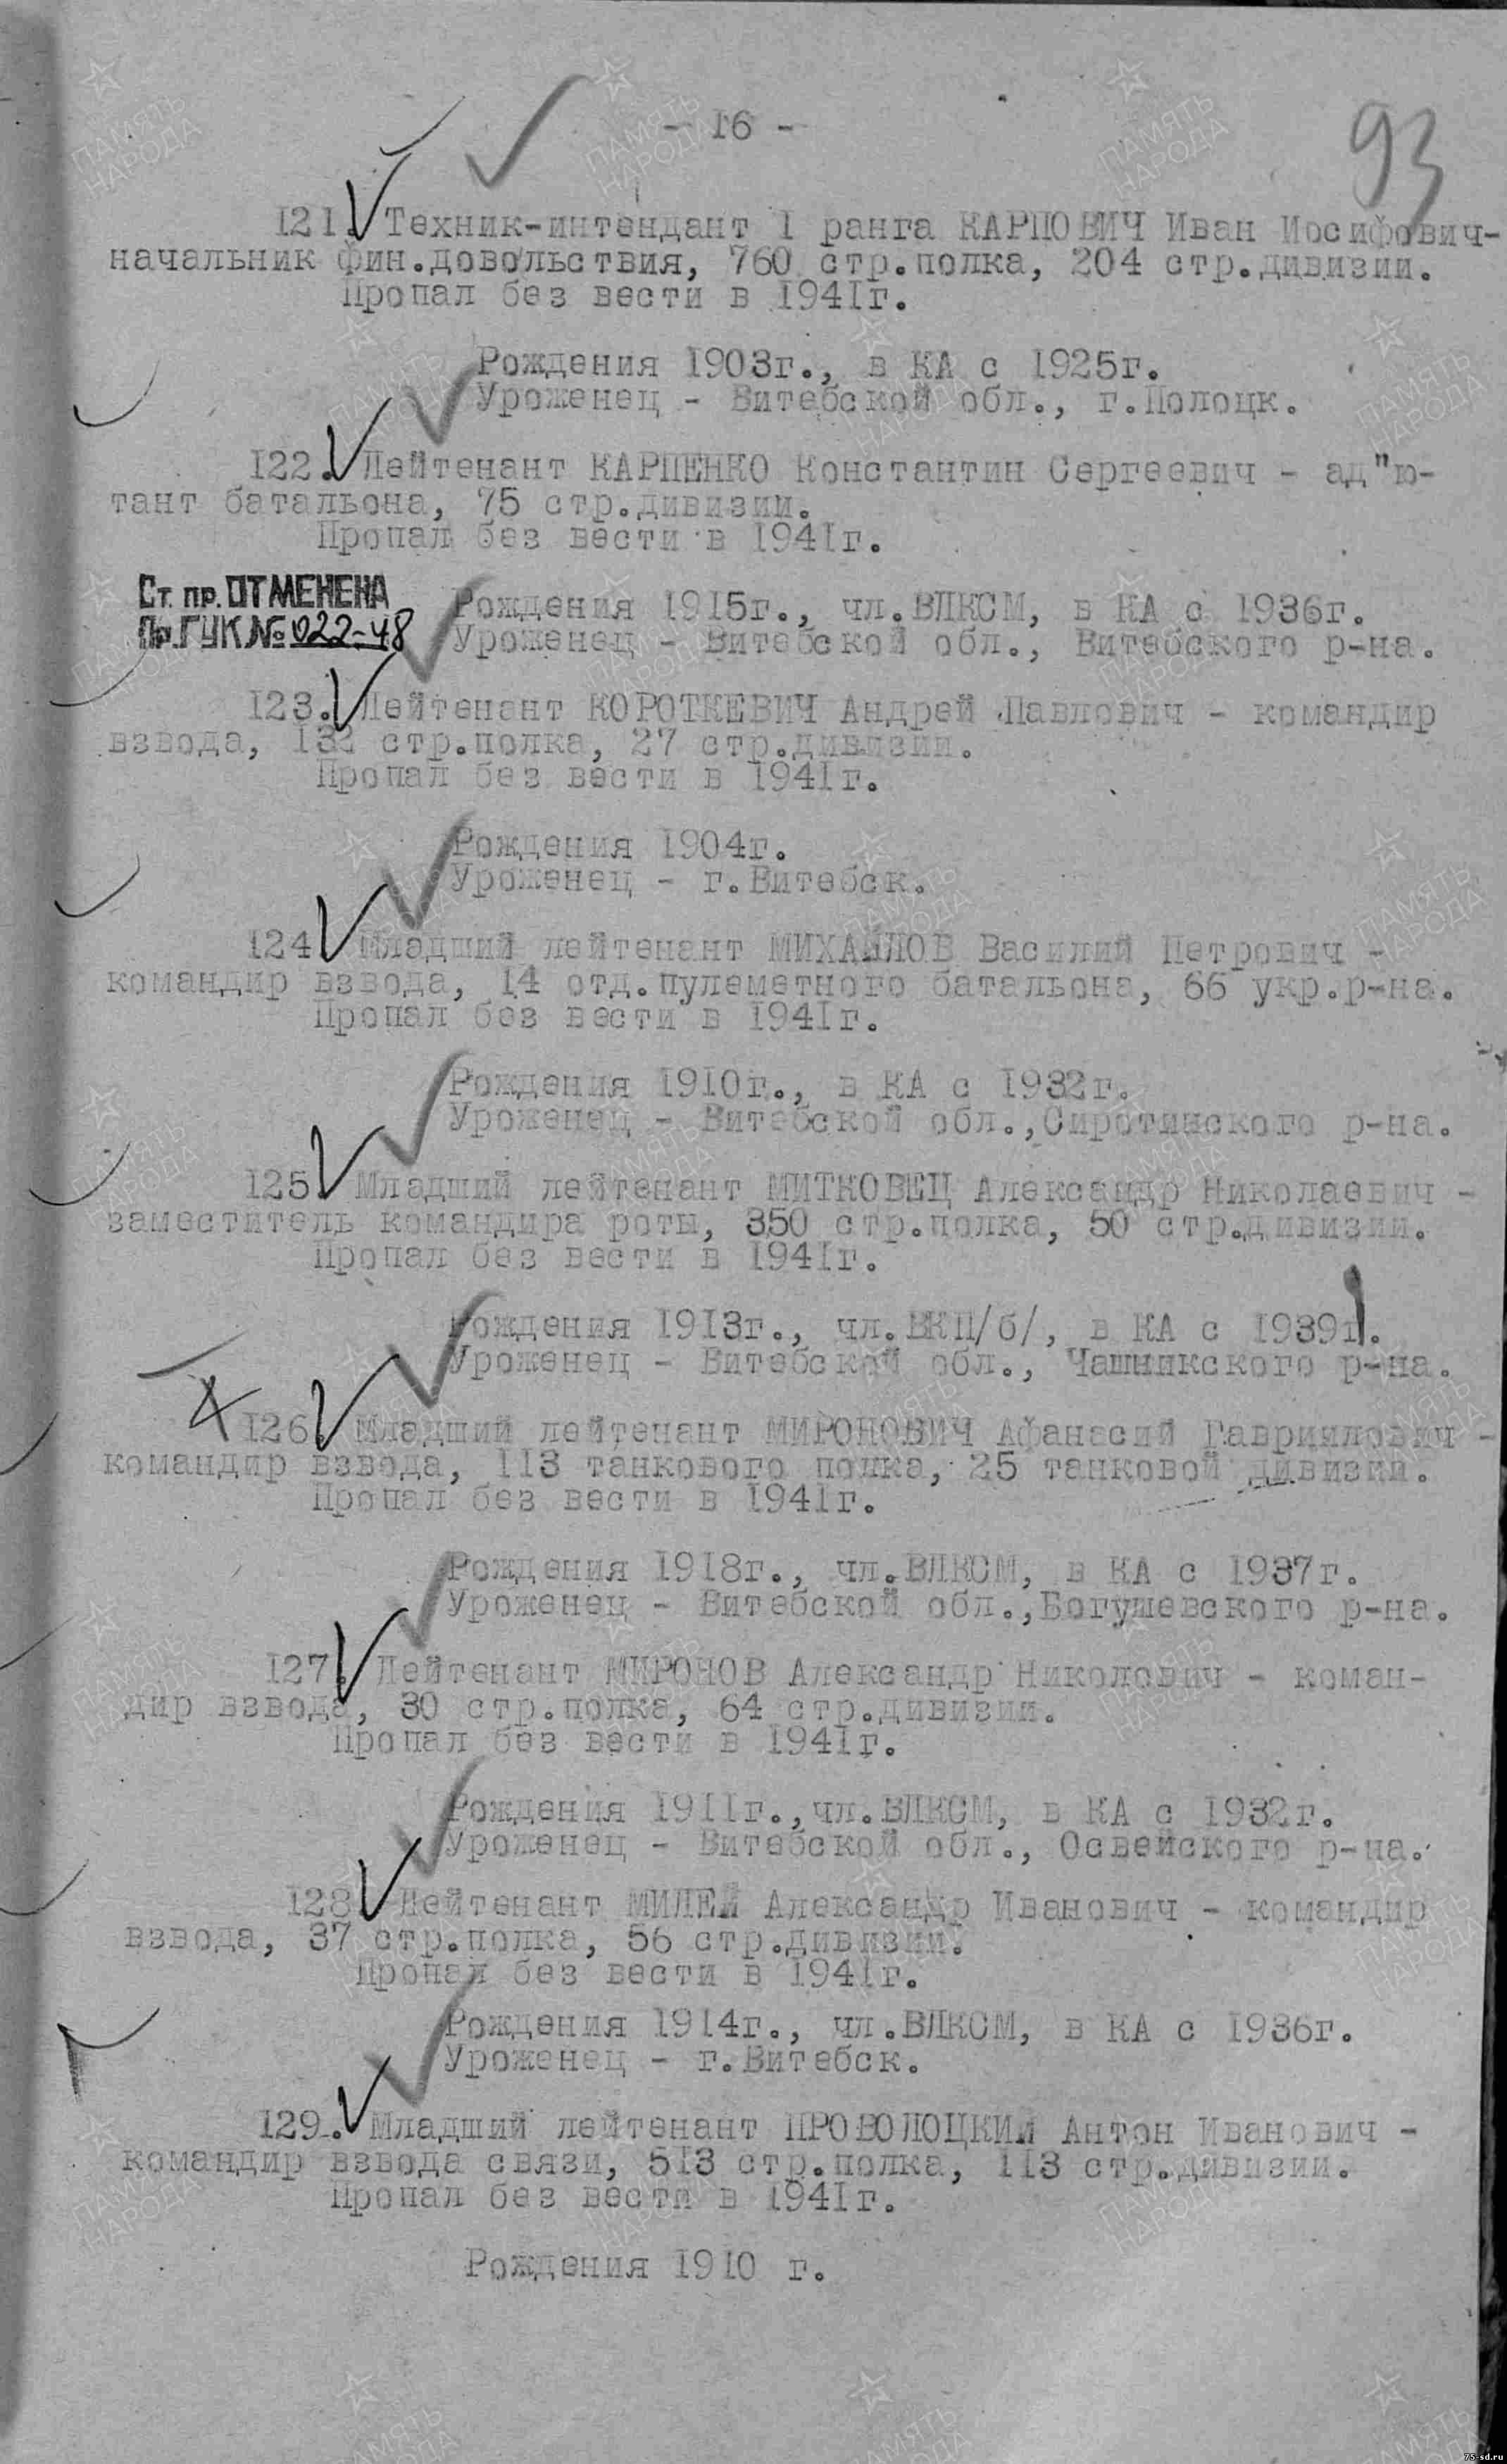 - 16 -
93
121. Техник-интендант 1 ранга КАРПОВИЧ Иван Иосифович-
начальник фин.довольствия, 760 стр.полка, 204 стр.дивизии.
Пропал без вести в 1941г.
Рождения 1903г., в КА с 1925г.
Уроженец - Витебской обл., г.Полоцк.
122. Лейтенант КАРПЕНКО Константин Сергеевич - ад"ю-
тант батальона, 75 стр.дивизии.
Пропал без вести в 1941г.
Ст. пр. ОТМЕНЕНА
Пр. ГУК № 022-48
Рождения 1915г., чл.ВЛКСМ, в КА с 1936г.
Уроженец - Витебской обл., Витебского р-на.
123. Лейтенант КОРОТКЕВИЧ Андрей Павлович - командир
взвода, 132 стр.полка, 27 стр.дивизии.
Пропал без вести в 1941г.
Рождения 1904г.
Уроженец - г.Витебск.
124. Младший лейтенант МИХАЙЛОВ Василий Петрович -
командир взвода, 14 отд.пулеметного батальона, 66 укр.р-на.
Пропал без вести в 1941г.
Рождения 1910г., в КА с 1932г.
Уроженец - Витебской обл.,Сиротинского р-на.
125. Младший лейтенант МИТКОВЕЦ Александр Николаевич -
заместитель командира роты, 350 стр.полка, 50 стр.дивизии.
Пропал без вести в 1941г.
Рождения 1913г., чл.ВКП/б/, в КА с 1939г.
Уроженец - Витебской обл., Чашникского р-на.
126. Младший лейтенант МИРОНОВИЧ Афанасий Гавриилович -
командир взвода, 113 танкового полка, 25 танковой дивизии.
Пропал без вести в 1941г.
Рождения 1918г., чл.ВЛКСМ, в КА с 1937г.
Уроженец - Витебской обл.,Богушевского р-на.
127. Лейтенант МИРОНОВ Александр Николович - коман-
дир взвода, 30 стр.полка, 64 стр.дивизии.
Пропал без вести в 1941г.
Рождения 1911г.,чл.ВЛКСМ, в КА с 1932г.
Уроженец - Витебской обл., Освейского р-на.
128. Лейтенант МИЛЕЙ Александр Иванович - командир
взвода, 37 стр.полка, 56 стр.дивизии.
Пропал без вести в 1941г.
Рождения 1914г., чл.ВЛКСМ, в КА с 1936г.
Уроженец - г.Витебск.
129. Младший лейтенант ПРОВОЛОЦКИЙ Антон Иванович -
командир взвода связи, 513 стр.полка, 113 стр.дивизии.
Пропал без вести в 1941г.
Рождения 1910 г.
ПАМЯТЬ НАРОДА
75-sd.ru